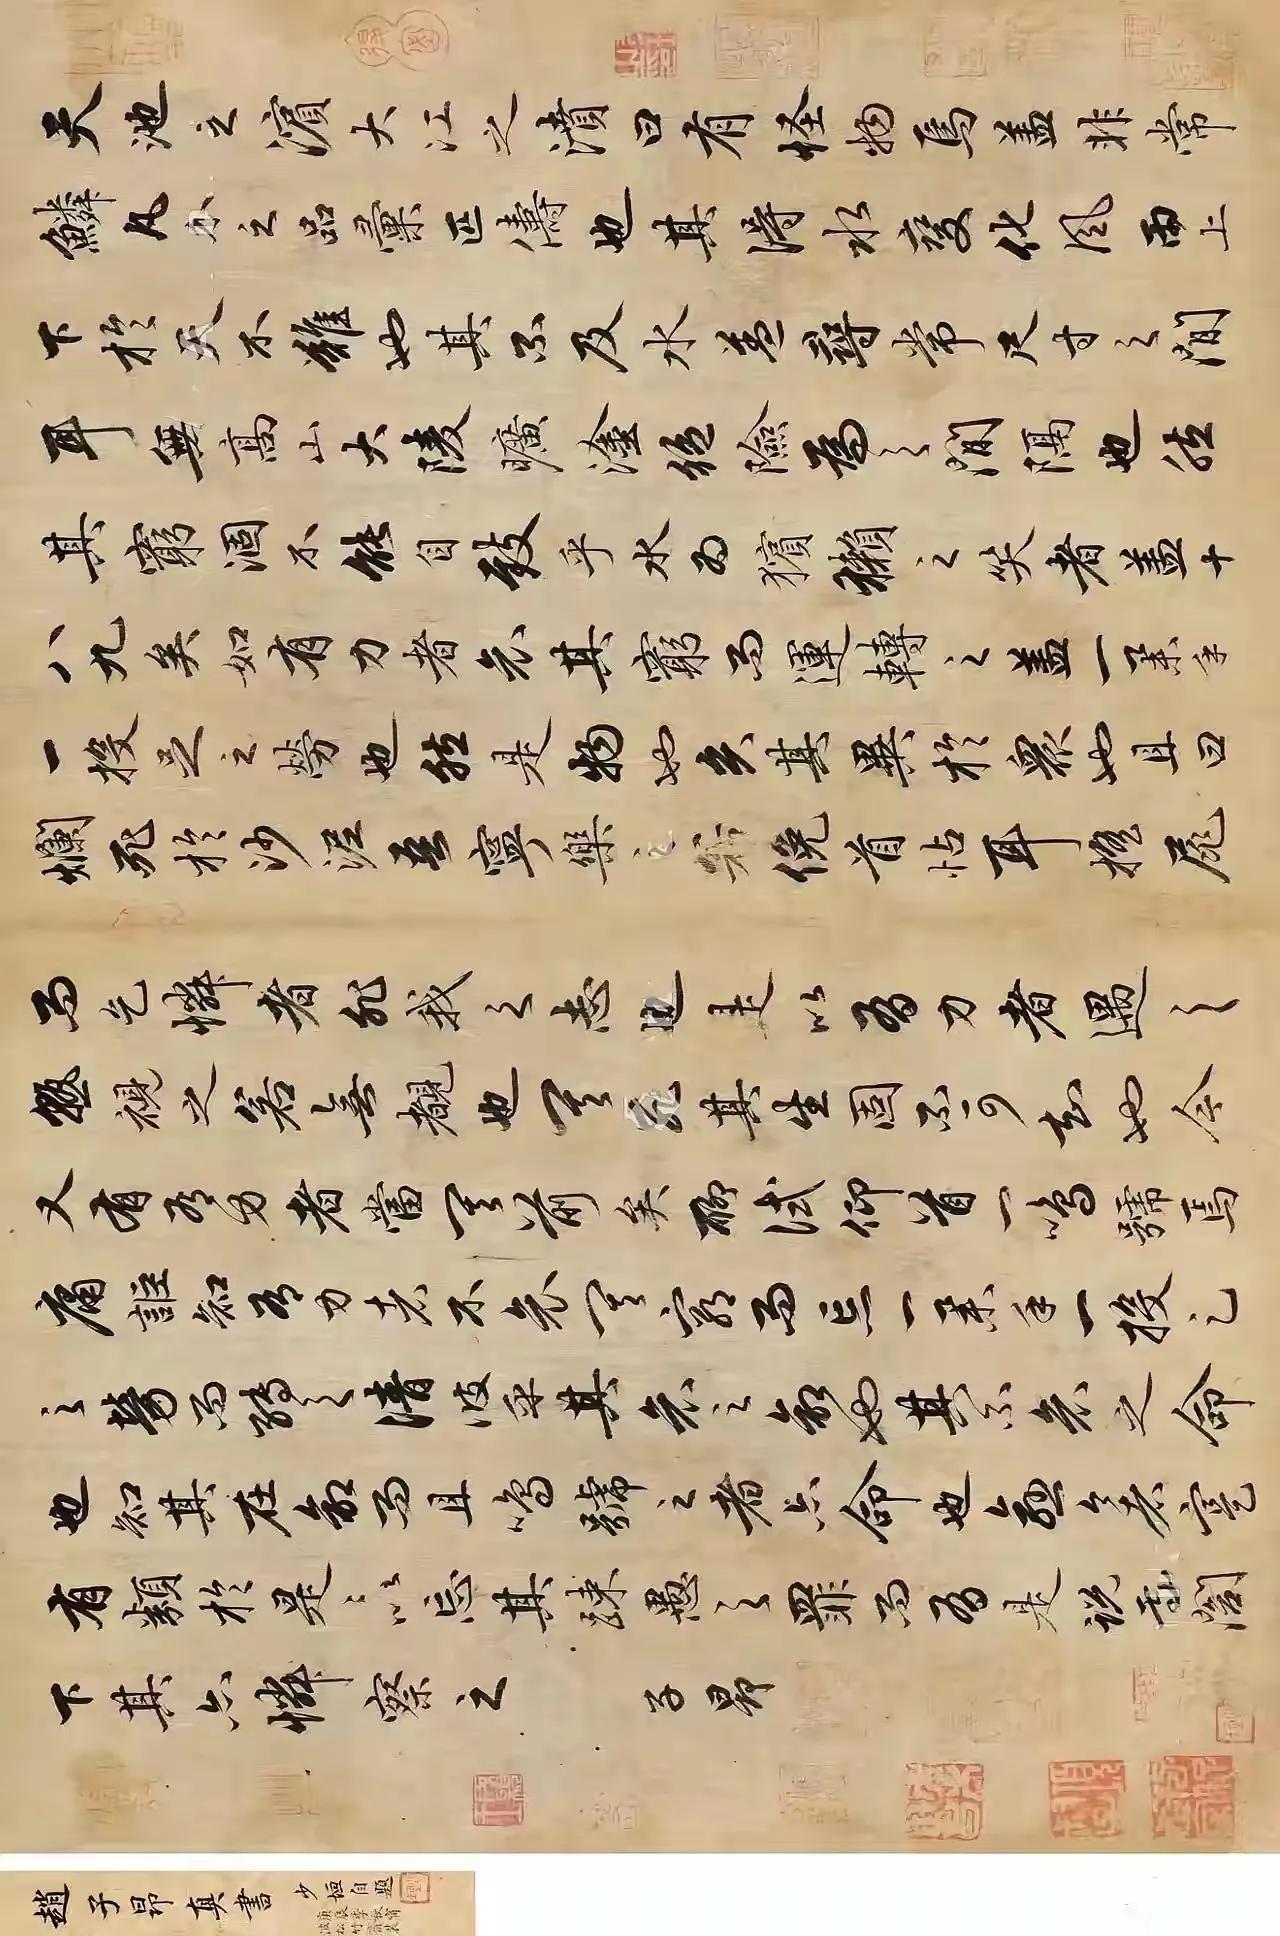 天池之濱大江之濆曰有怪物焉蓋非常
鱗凡介之品彙匹儔也其得水變化風雨上
下於天不難也其不及水蓋尋常尺寸之間
耳無高山大陵曠塗絕險為之間隔也然
其窮涸不能自致乎水為獱獺之笑者蓋十
八九矣如有力者哀其窮而運轉之蓋一舉手
一投足之勞也然是物也負其異於衆也且曰
爛死於沙泥吾寧樂之若俛首帖耳搖尾
而乞憐者非我之志也是以有力者遇之
熟視之若無覩也其死其生固不可知也今
又有有力者當其前矣聊試仰首一鳴號焉
庸詎知有力者不哀其窮而忘一舉手一投足
之勞而轉之清波乎其哀之命也其不哀之命
也知其在命而且鳴號之者亦命也愈今者實
有類於是是以忘其疎愚之罪而有是說焉閤
下其亦憐察之 子昂
趙子昂真書 少垣自題